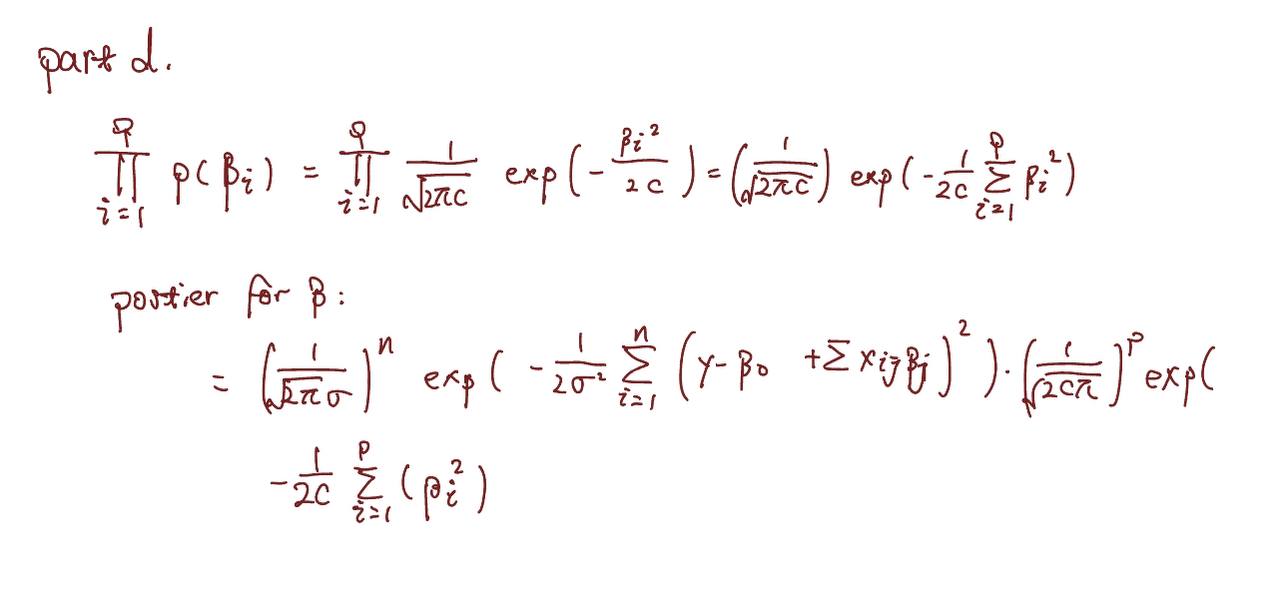 part d.
∏_{i=1}^{p} p(β_i) = ∏_{i=1}^{p} \frac{1}{\sqrt{2πc}} exp(-\frac{β_i^2}{2c}) = (\frac{1}{\sqrt{2πc}}) exp(-\frac{1}{2c} ∑_{i=1}^{p} β_i^2)
postier for β:
= (\frac{1}{\sqrt{2π}σ})^n exp(-\frac{1}{2σ^2} ∑_{i=1}^{n} (y-β_0 +∑x_{ij}β_j)^2) · (\frac{1}{\sqrt{2cπ}})^p exp(
-\frac{1}{2c} ∑_{i=1}^{p} (β_i^2)